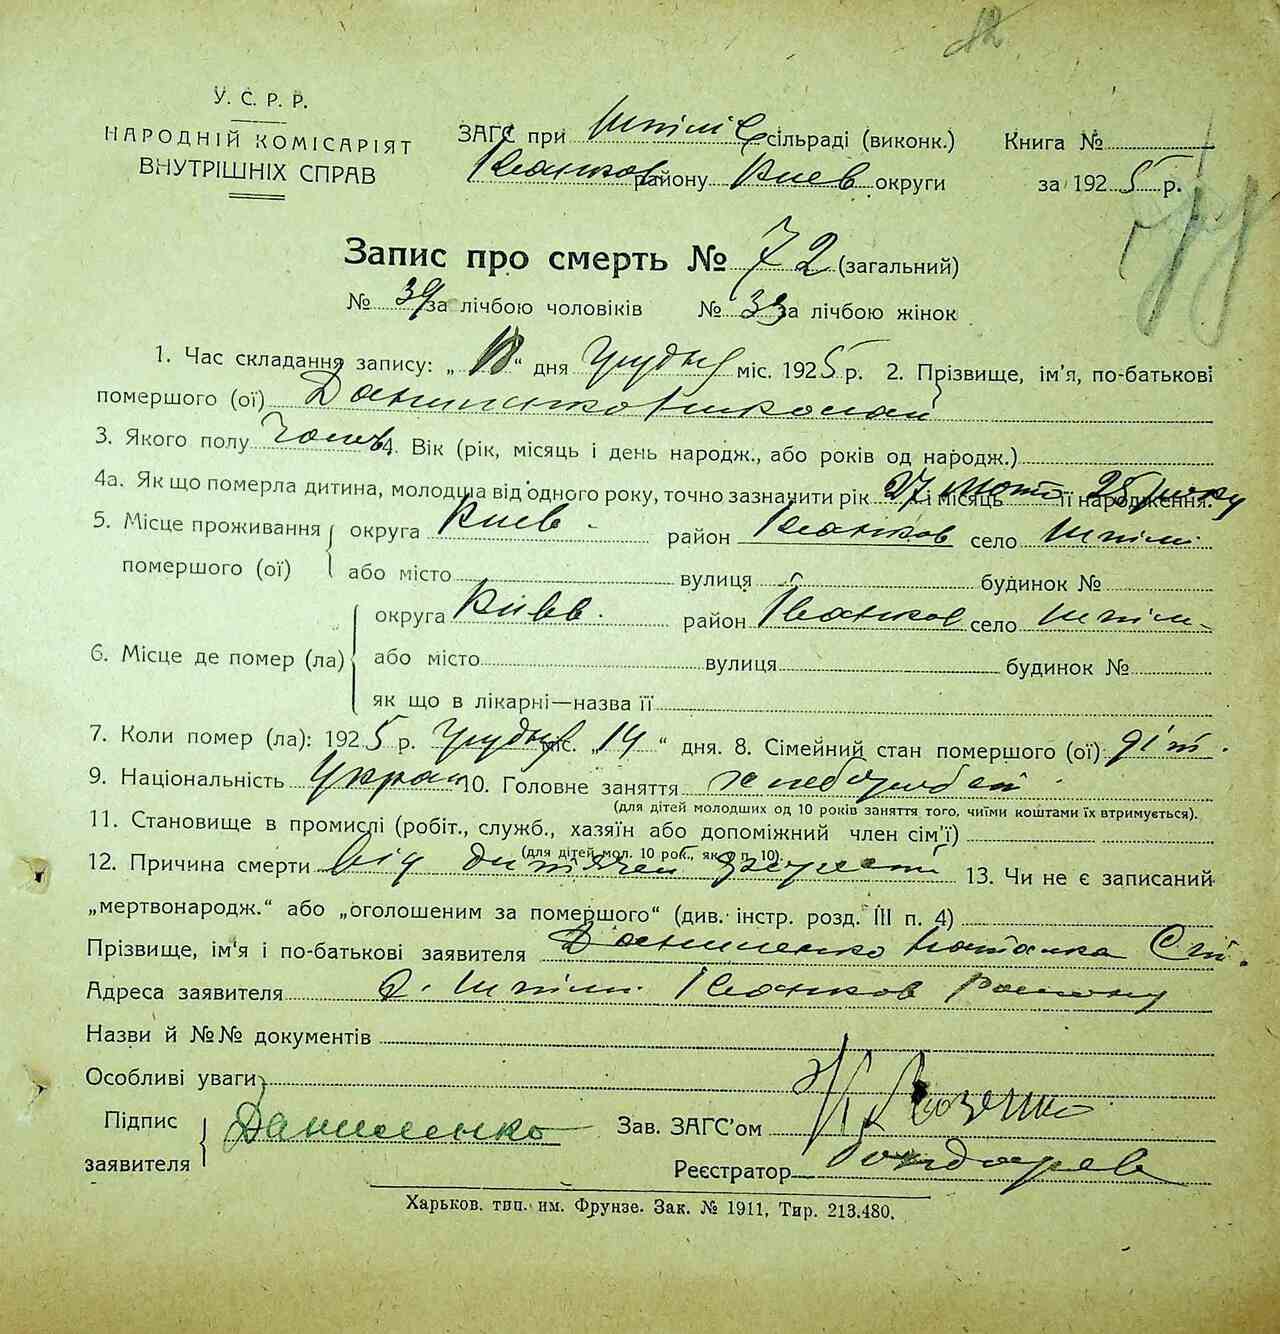 У. С. Р. Р.
НАРОДНІЙ КОМІСАРІЯТ
ВНУТРІШНІХ СПРАВ
ЗАГС при Шпілів сільраді (виконк.)
Іванков району Киев округи
Книга №
за 1925 р.
Запис про смерть № 72 (загальний)
№ 39 за лічбою чоловіків № 33 за лічбою жінок
1. Час складання запису: „18“ дня грудня міс. 1925 р. 2. Прізвище, ім'я, по-батькові
помершого (ої) Даниленко Николай
3. Якого полу чолов 4. Вік (рік, місяць і день народж., або років од народж.)
4а. Як що померла дитина, молодша від одного року, точно зазначити рік 27 і місяць лютого 25 року її народження.
5. Місце проживання помершого (ої) округа Киев район Іванков село Шпілі
або місто вулиця будинок №
6. Місце де помер (ла) округа Киев район Іванков село Шпіли
або місто вулиця будинок №
як що в лікарні—назва її
7. Коли помер (ла): 1925 р. грудня міс. „14“ дня. 8. Сімейний стан помершого (ої) діт.
9. Національність Украин 10. Головне заняття хлебороб
(для дітей молодших од 10 років заняття того, чиїми коштами їх втримується).
11. Становище в промислі (робіт., служб., хазяїн або допоміжний член сім'ї)
(для дітей мол. 10 рок., як в п. 10).
12. Причина смерти від 13. Чи не є записаний
„мертвонародж.“ або „оголошеним за помершого“ (див. інстр. розд. III п. 4)
Прізвище, ім'я і по-батькові заявителя Даниленко Наталка Ст.
Адреса заявителя с. Шпіли Іванков району
Назви й №№ документів
Особливі уваги
Підпис заявителя Даниленко
Зав. ЗАГС'ом
Реєстратор
Харьков. тип. им. Фрунзе. Зак. № 1911, Тир. 213.480.